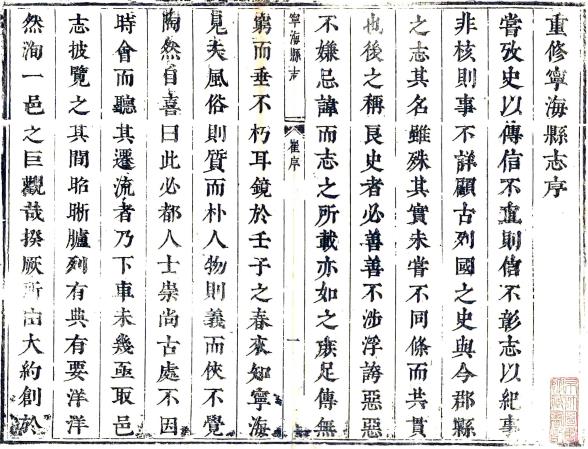 重修寧海縣志序
嘗攷史以傳信不直則信不彰志以紀事
非核則事不詳顧古列國之史與今郡縣
之志其名雖殊其實未嘗不同條而共貫
也後之稱良史者必善善不涉浮誇惡惡
不嫌忌諱而志之所載亦如之庶足傳無
寧海縣志
崔序
一
窮而垂不朽耳鏡於壬子之春來知寧海
見夫風俗則質而朴人物則義而俠不覺
陶然自喜曰此必都人士崇尚古處不因
時會而聽其遷流者乃下車未幾亟取邑
志披覽之其間昭晣臚列有典有要洋洋
然洵一邑之巨觀哉揆厥所由大約創於